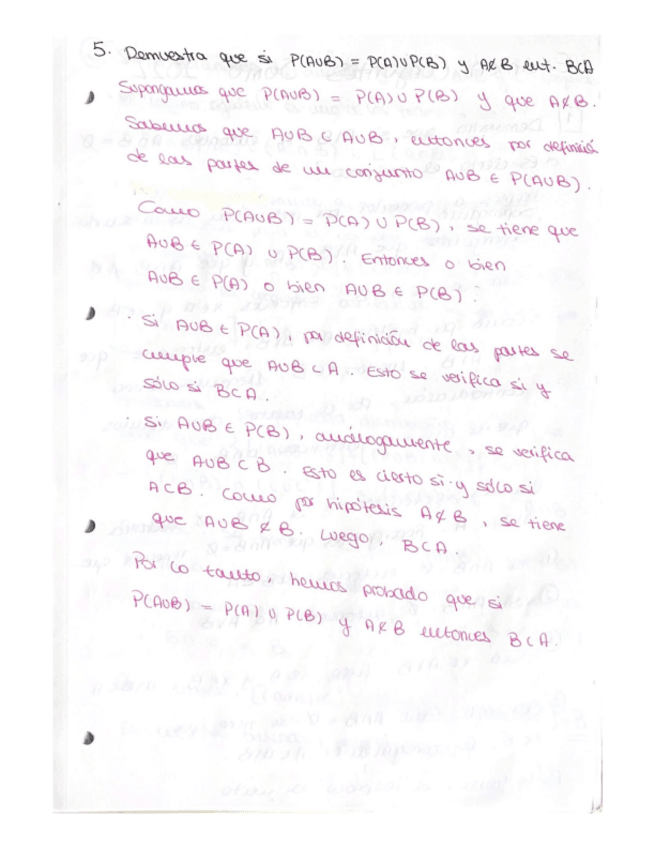 5. Demuestra que si P(A∪B) = P(A)∪P(B) y A⊄B ent. B⊂A
Supongamos que P(A∪B) = P(A) ∪ P(B) y que A⊄B.
Sabemos que A∪B ⊂ A∪B, entonces por definición
de las partes de un conjunto A∪B ∈ P(A∪B).
Como P(A∪B) = P(A) ∪ P(B), se tiene que
A∪B ∈ P(A) ∪ P(B). Entonces o bien
A∪B ∈ P(A) o bien A∪B ∈ P(B).
· Si A∪B ∈ P(A), por definición de las partes se
cumple que A∪B ⊂ A. Esto se verifica si y
sólo si B⊂A.
· Si A∪B ∈ P(B), análogamente, se verifica
que A∪B ⊂ B. Esto es cierto si y sólo si
A⊂B. Como por hipótesis A⊄B, se tiene
que A∪B ⊄ B. Luego, B⊂A.
Por lo tanto, hemos probado que si
P(A∪B) = P(A) ∪ P(B) y A⊄B entonces B⊂A.